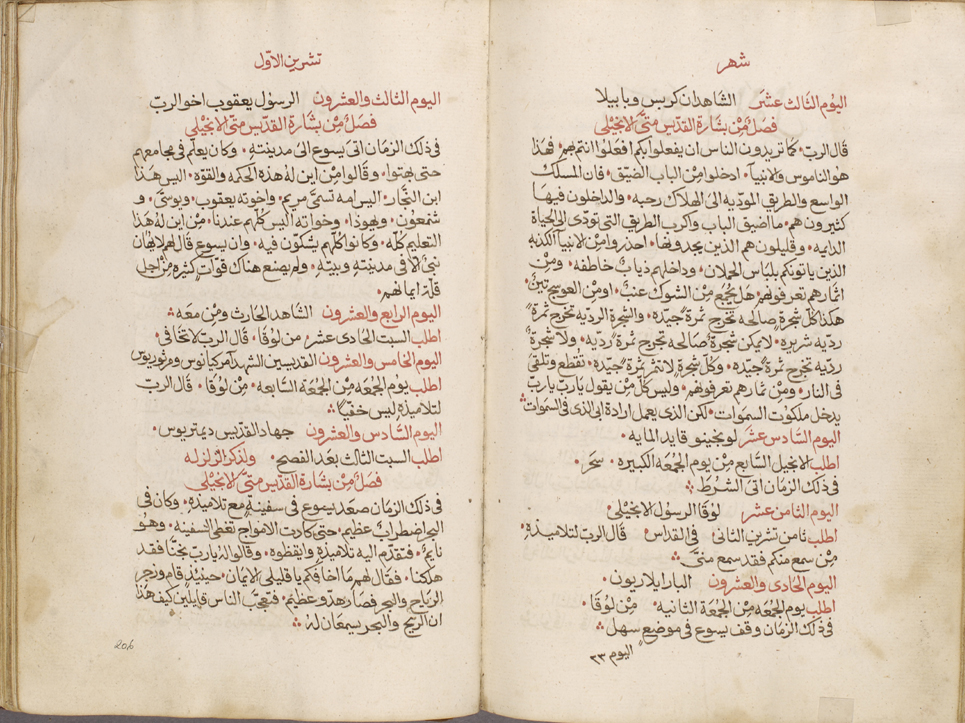 شهر
اليوم الثالث عشر الشاهدان كربس وبابيلا
فصل من بشارة القديس متى الانجيلي
قال الرب • كما تريدون الناس ان يفعلوا بكم افعلوا انتم بهم • فهذا
هو الناموس والانبيا • ادخلوا من الباب الضيق • فان المسلك
الواسع والطريق المودية الى الهلاك رحبه • والداخلون فيها
كثيرون هم • ما اضيق الباب واكرب الطريق التي تودى الى الحياة
الدايمه • وقليلون هم الذين يجدونها • احذروا من الانبيا الكذبه
الذين ياتونكم بلباس الحملان • وداخلهم ذياب خاطفه • ومن
اثمارهم تعرفونهم • هل يجمع من الشوك عنب • او من العوسج تين •
هكذا كل شجرة صالحه تخرج ثمرة جيده • والشجرة الرديه تخرج ثمرة
رديه شريره • لا يمكن شجرة صالحه تخرج ثمرة رديه • ولا شجرة
رديه تخرج ثمرة جيده • وكل شجرة لا تثمر ثمرة جيده • تقطع وتلقى
في النار • ومن ثمارهم تعرفونهم • وليس كل من يقول يارب يارب
يدخل ملكوت السموات • لكن الذي يعمل ارادة ابي الذي في السموات
اليوم السادس عشر لونجينو قايد المايه •
اطلب الانجيل السابع من يوم الجمعه الكبيره • سحر •
في ذلك الزمان اتى الشرط
اليوم الثامن عشر لوقا الرسول الانجيلي •
اطلب ثامن تشرين الثاني في القداس • قال الرب لتلاميذه •
من سمع منكم فقد سمع مني
اليوم الحادى والعشرون البار ايلاريون •
اطلب يوم الجمعه من الجمعة الثانيه • من لوقا •
في ذلك الزمان وقف يسوع في موضع سهل
اليوم ٢٣
تشرين الاوّل
اليوم الثالث والعشرون الرسول يعقوب اخو الربّ
فصل من بشارة القديس متى الانجيلي
في ذلك الزمان اتى يسوع الى مدينته • وكان يعلم في مجامعهم
حتى بهتوا • وقالوا من اين له هذه الحكمه والقوة • اليس هذا
ابن النجّار • اليس امه تسمّى مريم • واخوته يعقوب • ويوسّى • و
شمعون • ويهوذا • وخواته اليس كلهم عندنا • من اين له هذا
التعليم كلّه • وكانوا كلهم يشكّون فيه • وان يسوع قال لهم لا يهان
نبيّ الا في مدينته وبيته • ولم يصنع هناك قوّات كثيرة من اجل
قلة ايمانهم •
اليوم الرابع والعشرون الشاهد الحارث ومن معه
اطلب السبت الحادى عشر من لوقا • قال الرب لا تخافى •
اليوم الخامس والعشرون القديسين الشهدا مركيانوس ومرتوريوس
اطلب يوم الجمعه من الجمعه السابعه • من لوقا • قال الرب
لتلاميذه ليس خفيّا
اليوم السادس والعشرون جهاد القديس ديمتريوس •
اطلب السبت الثالث بعد الفصح • ولذكر الزلزله
فصل من بشارة القديس متى الانجيلي
في ذلك الزمان صعد يسوع في سفينة مع تلاميذه • وكان في
البحر اضطراب عظيم • حتى كادت الامواج تغطى السفينه • وهو
نايم • فتقدّم اليه تلاميذه وايقظوه • وقالوا له يارب نجّنا فقد
هلكنا • فقال لهم ما اخافكم يا قليلي الايمان • حينيذ قام وزجر
الرياح والبحر فصار هدو عظيم • فتعجّب الناس قايلين كيف هذا
ان الريح والبحر يسمعان له
206